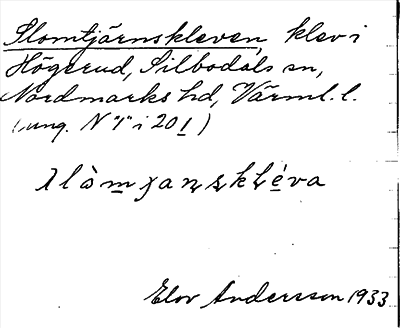 Slomtjärnskleven, klev i
Högerud, Silbodals sn,
Nordmarks hd, Värml. l.
(ung. N "1" i 201)
Elov Andersson 1933